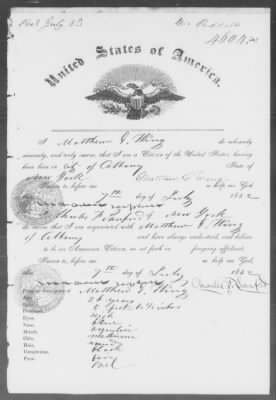 July 8
4604
United States of America.
I Matthew G. Wing do solemnly
sincerely, and truly swear, that I am a Citizen of the United States, having
been born in City of Albany State of
New York
Sworn to before me so help me God.
this 7th day of July 1862
Charles F. Sanford of New York
do swear that I am acquainted with Matthew G. Wing
of Albany and have always understood, and believe
to be an American Citizen, as set forth in foregoing affidavit,
Sworn to before me so help me God.
this 7th day of July 1862
Charles F. Sanford
Matthew G. Wing
Age, 26 years
Stature, 5 feet
Forehead, high
Eyes, blue
Nose, aquiline
Mouth, medium
Chin,
Hair, black
Complexion,
Face, oval